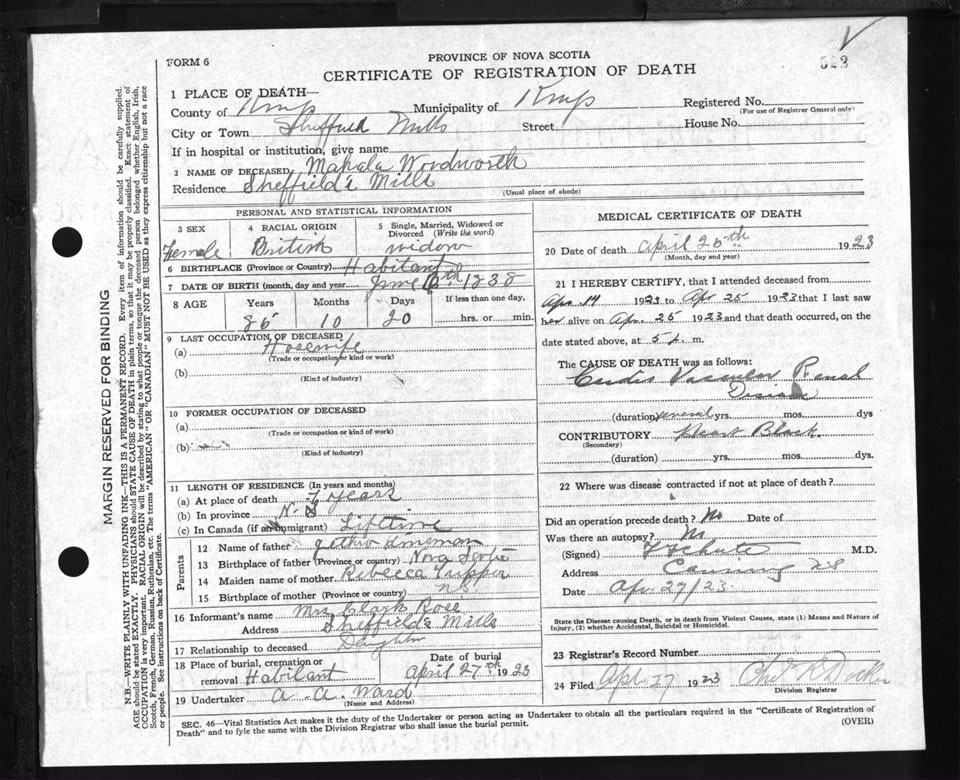 FORM 6
PROVINCE OF NOVA SCOTIA
CERTIFICATE OF REGISTRATION OF DEATH
1 PLACE OF DEATH—
County of Kings Municipality of Kings Registered No.
(For use of Registrar General only)
City or Town Sheffield Mills Street House No.
If in hospital or institution, give name
2 NAME OF DECEASED Mahala Woodworth
Residence Sheffield's Mills
(Usual place of abode)
PERSONAL AND STATISTICAL INFORMATION
3 SEX 4 RACIAL ORIGIN 5 Single, Married, Widowed or Divorced (Write the word)
Female British widow
6 BIRTHPLACE (Province or Country) Habitant
7 DATE OF BIRTH (month, day and year) June 1838
8 AGE Years Months Days If less than one day,
10 20 hrs. or min.
9 LAST OCCUPATION OF DECEASED
(a) Hosewife
(Trade or occupation or kind or work)
(b)
(Kind of industry)
10 FORMER OCCUPATION OF DECEASED
(a)
(Trade or occupation or kind of work)
(b)
(Kind of industry)
11 LENGTH OF RESIDENCE (In years and months)
(a) At place of death 7 years
(b) In province N. S
(c) In Canada (if an immigrant) Liftime
Parents
12 Name of father
13 Birthplace of father (Province or country) Nova Scotia
14 Maiden name of mother Rebecca
15 Birthplace of mother (Province or country) N.S.
16 Informant's name Mrs Clark Rose
Address Sheffields Mills
17 Relationship to deceased Daughter
18 Place of burial, cremation or removal Habitant
Date of burial April 27th 1923
19 Undertaker A. A. Ward
(Name and Address)
MEDICAL CERTIFICATE OF DEATH
20 Date of death April 25th 1923
(Month, day and year)
21 I HEREBY CERTIFY, that I attended deceased from
Apr 19 1923 to Apr 25 1923 that I last saw
her alive on Apr 25 1923 and that death occurred, on the
date stated above, at 5 m.
The CAUSE OF DEATH was as follows:
Cardio Vascular Renal
Disease
(duration) several yrs. mos. dys
CONTRIBUTORY Heart Block.
(Secondary)
(duration) yrs. mos. dys.
22 Where was disease contracted if not at place of death?
Did an operation precede death? No Date of
Was there an autopsy? No
(Signed) M.D.
Address Canning NS
Date Apr. 27/23
State the Disease causing Death, or in death from Violent Causes, state (1) Means and Nature of
Injury, (2) whether Accidental, Suicidal or Homicidal.
23 Registrar's Record Number
24 Filed Apr 27 1923
Division Registrar
SEC. 46—Vital Statistics Act makes it the duty of the Undertaker or person acting as Undertaker to obtain all the particulars required in the "Certificate of Registration of
Death" and to fyle the same with the Division Registrar who shall issue the burial permit.
(OVER)
MARGIN RESERVED FOR BINDING
N.B.—WRITE PLAINLY WITH UNFADING INK—THIS IS A PERMANENT RECORD. Every item of information should be carefully supplied.
AGE should be stated EXACTLY. PHYSICIANS should STATE CAUSE OF DEATH in plain terms, so that it may be properly classified. Exact statement of
OCCUPATION is very important. RACIAL ORIGIN will be described by stating to what people or tongue the deceased person belonged whether English, Irish,
Scotch, French, German, Russian, Ruthenian, etc. The terms "AMERICAN" OR "CANADIAN" MUST NOT BE USED as they express citizenship but not a race
or people. See instructions on back of Certificate.